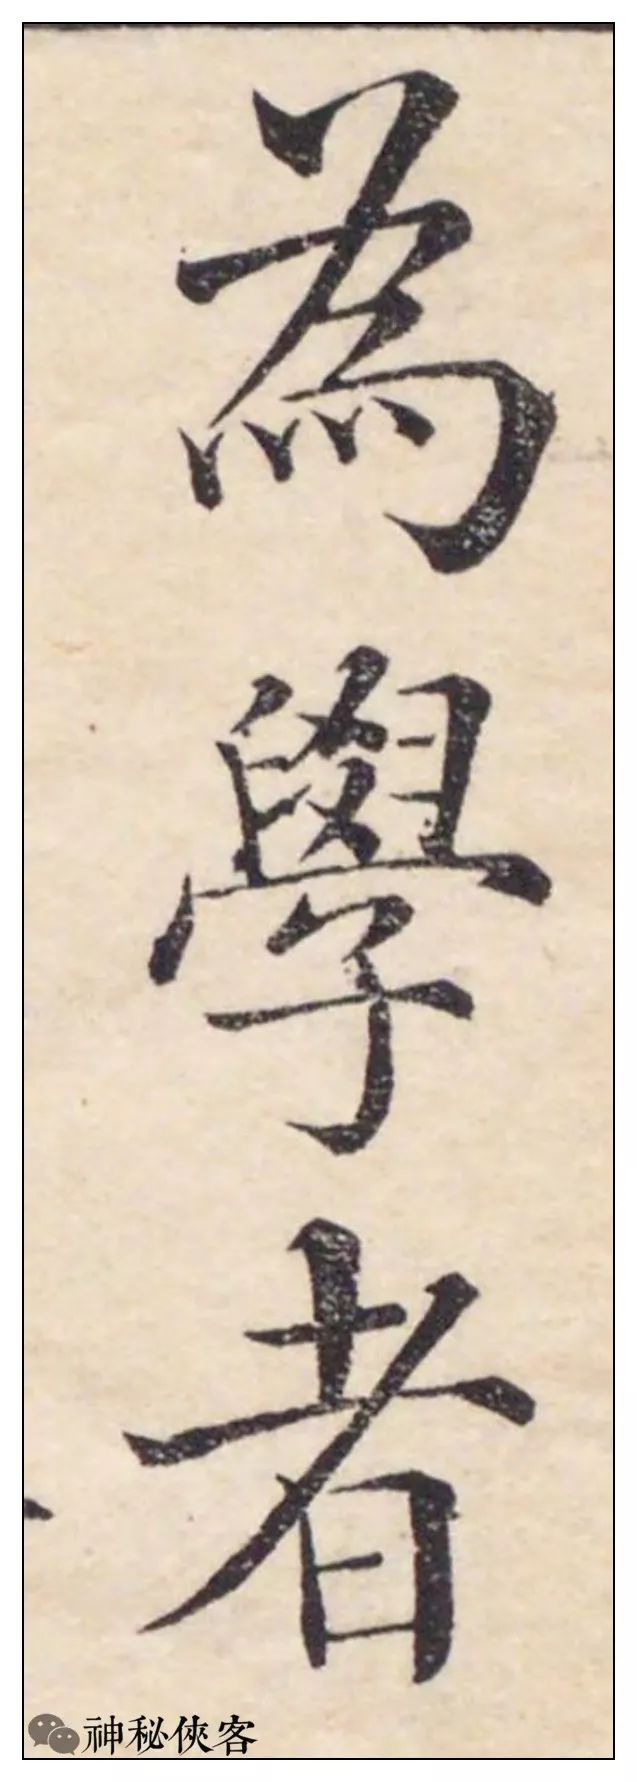 為學者
神秘俠客